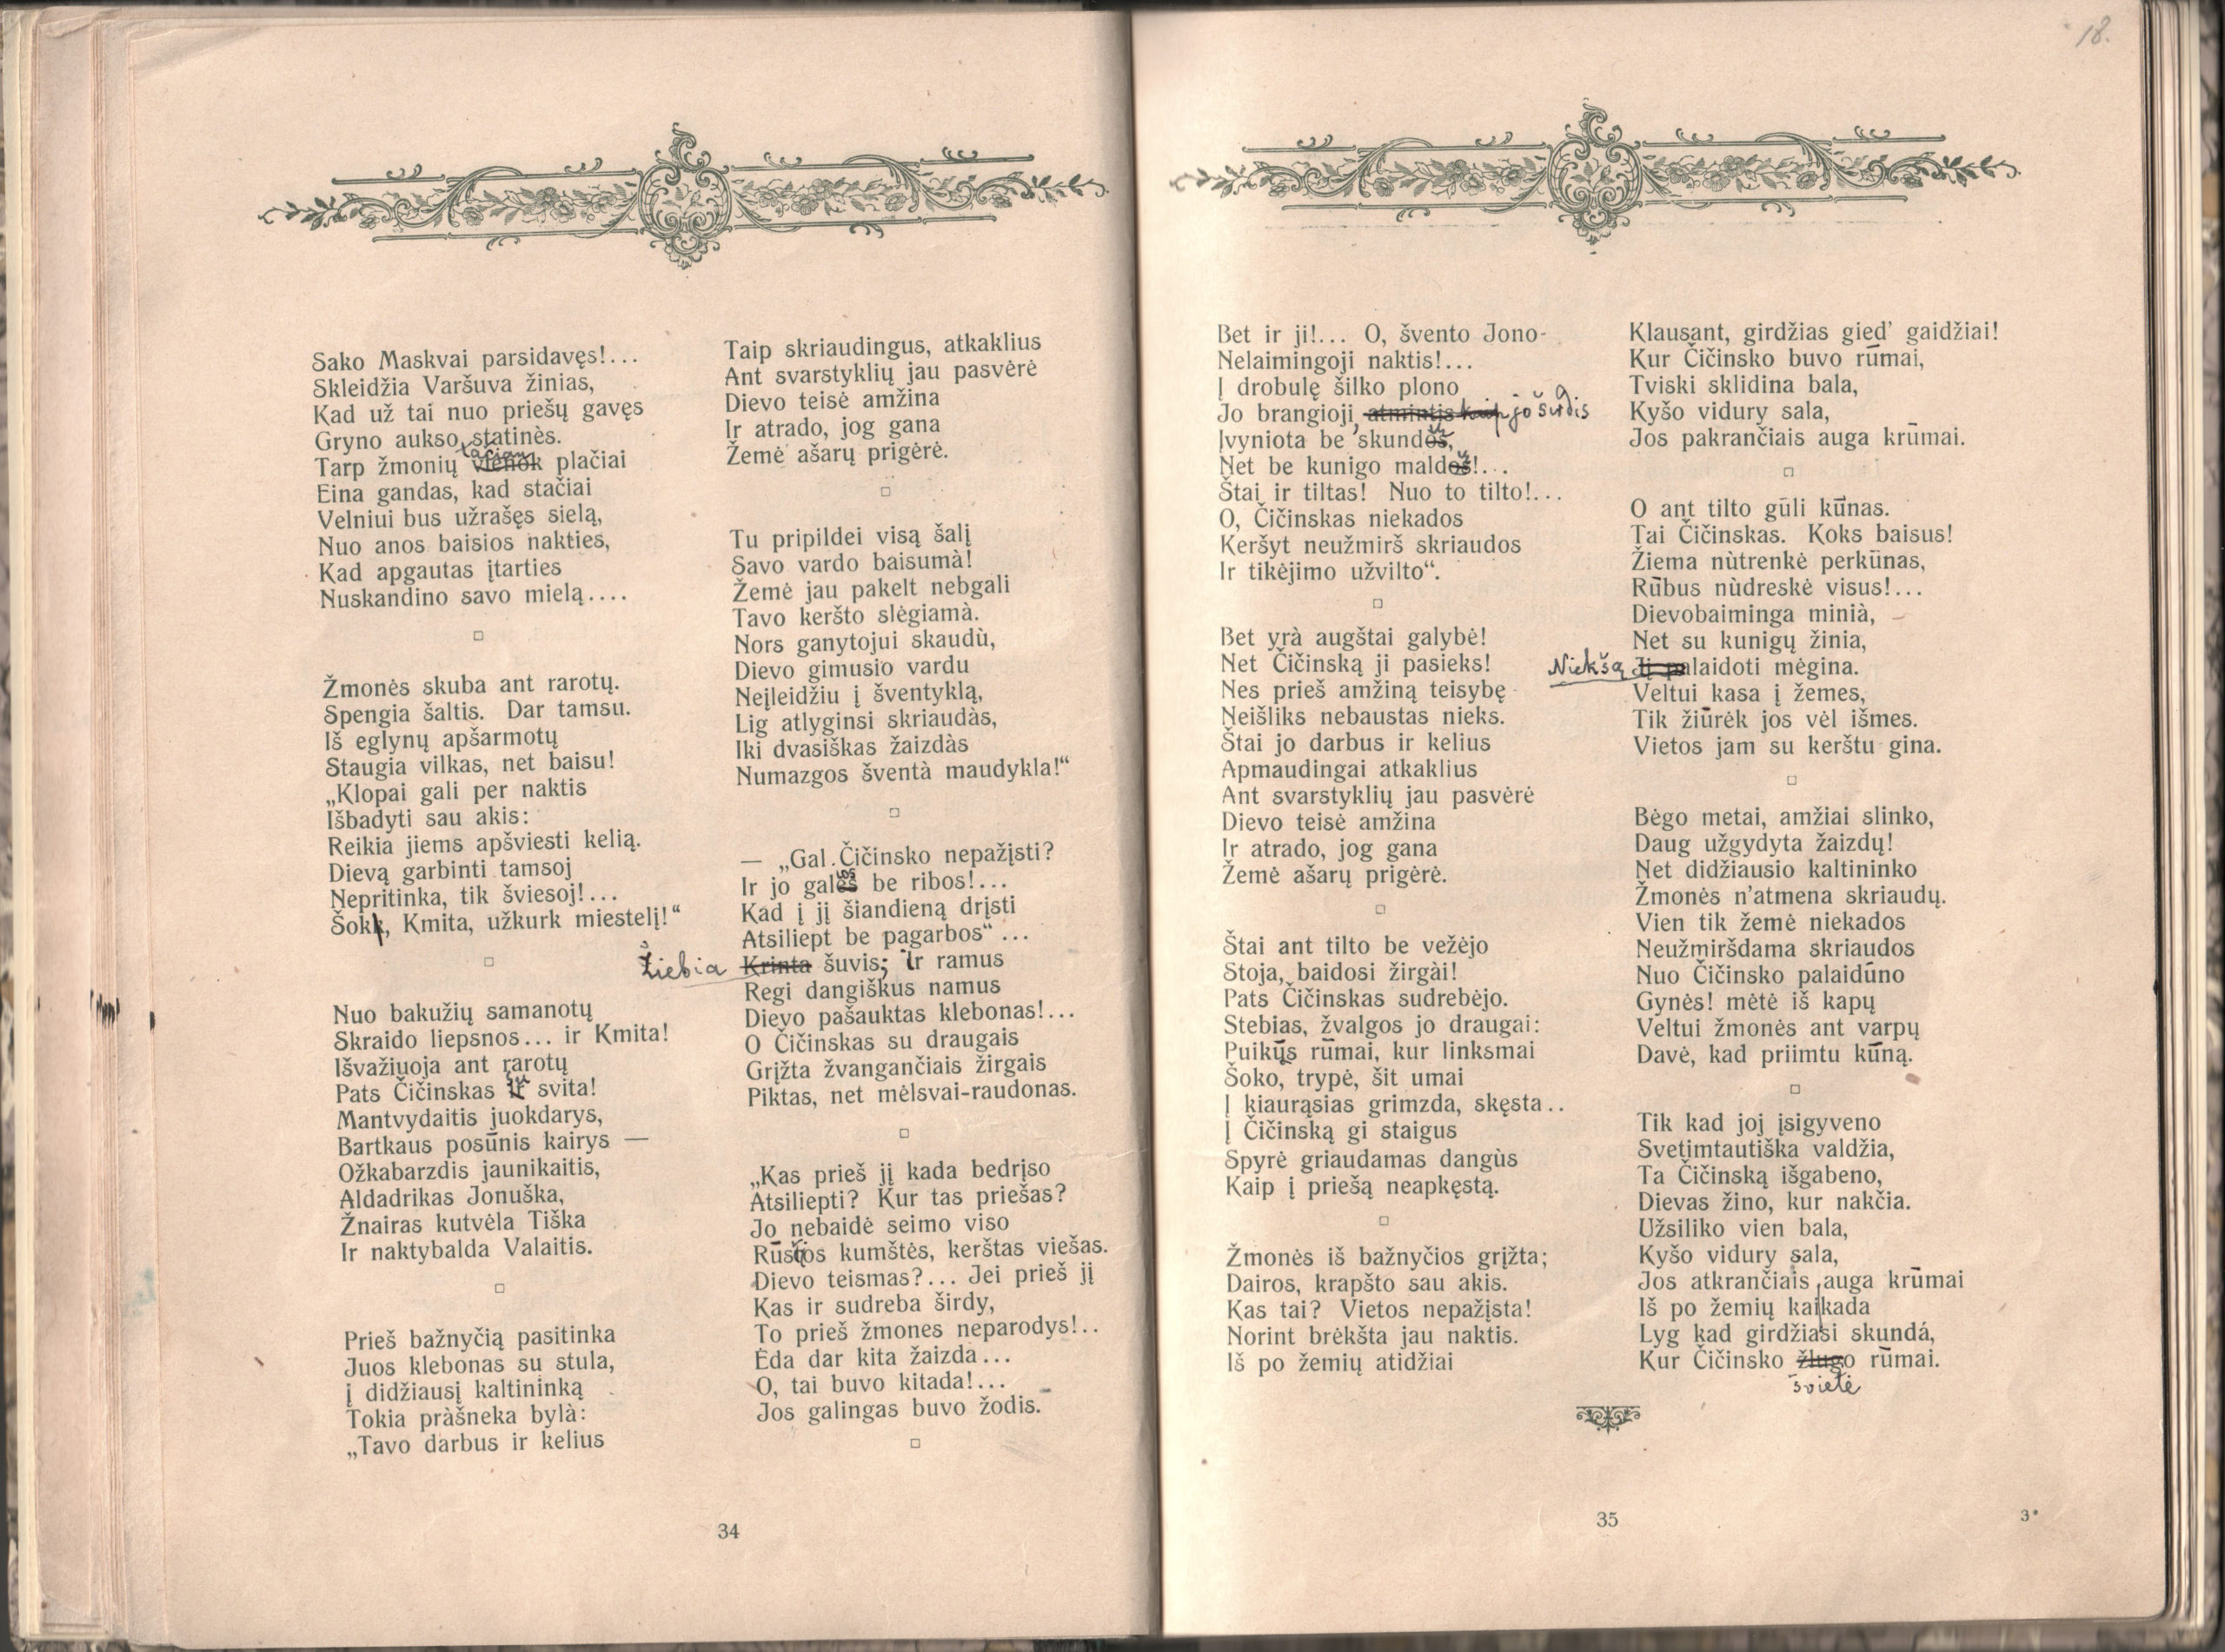 18.
Sako Maskvai parsidavęs!...
Skleidžia Varšuva žinias,
Kad už tai nuo priešų gavęs
Gryno aukso statinės.
tačiau
Tarp žmonių vienok plačiai
Eina gandas, kad stačiai
Velniui bus užrašęs sielą,
Nuo anos baisios nakties,
Kad apgautas įtarties
Nuskandino savo mielą....
Žmonės skuba ant rarotų.
Spengia šaltis. Dar tamsu.
Iš eglynų apšarmotų
Staugia vilkas, net baisu!
„Klopai gali per naktis
Išbadyti sau akis:
Reikia jiems apšviesti kelią.
Dievą garbinti tamsoj
Nepritinka, tik šviesoj!...
Šokk, Kmita, užkurk miestelį!“
Nuo bakužių samanotų
Skraido liepsnos... ir Kmita!
Išvažiuoja ant rarotų
Pats Čičinskas ir svita!
Mantvydaitis juokdarys,
Bartkaus posūnis kairys —
Ožkabarzdis jaunikaitis,
Aldadrikas Jonuška,
Žnairas kutvėla Tiška
Ir naktybalda Valaitis.
Prieš bažnyčią pasitinka
Juos klebonas su stula,
Į didžiausį kaltininką
Tokia pràšneka bylà:
„Tavo darbus ir kelius
Taip skriaudingus, atkaklius
Ant svarstyklių jau pasvėrė
Dievo teisė amžina
Ir atrado, jog gana
Žemė ašarų prigėrė.
Tu pripildei visą šalį
Savo vardo baisumà!
Žemė jau pakelt nebgali
Tavo keršto slėgiamà.
Nors ganytojui skaudù,
Dievo gimusio vardu
Neįleidžiu į šventyklą,
Lig atlyginsi skriaudàs,
Iki dvasiškas žaizdàs
Numazgos šventà maudykla!“
— „Gal Čičinsko nepažįsti?
Ir jo galios be ribos!...
Kad į jį šiandieną drįsti
Atsiliept be pagarbos“ ...
Žiebia Krinta šuvis; Ir ramus
Regi dangiškus namus
Dievo pašauktas klebonas!...
O Čičinskas su draugais
Grįžta žvangančiais žirgais
Piktas, net mėlsvai-raudonas.
„Kas prieš jį kada bedrįso
Atsiliepti? Kur tas priešas?
Jo nebaidė seimo viso
Rūsčios kumštės, kerštas viešas.
Dievo teismas?... Jei prieš jį
Kas ir sudreba širdy,
To prieš žmones neparodys!..
Ėda dar kita žaizda...
O, tai buvo kitada!...
Jos galingas buvo žodis.
34
Bet ir ji!... O, švento Jono-
Nelaimingoji naktis!...
Į drobulę šilko plono
Jo brangioji, atmintis kaip jo širdis
Įvyniota be skundų,
Net be kunigo maldų!...
Štai ir tiltas! Nuo to tilto!...
O, Čičinskas niekados
Keršyt neužmirš skriaudos
Ir tikėjimo užvilto“.
Bet yrà augštai galybė!
Net Čičinską ji pasieks!
Nes prieš amžiną teisybę
Neišliks nebaustas nieks.
Štai jo darbus ir kelius
Apmaudingai atkaklius
Ant svarstyklių jau pasvėrė
Dievo teisė amžina
Ir atrado, jog gana
Žemė ašarų prigėrė.
Štai ant tilto be vežėjo
Stoja, baidosi žirgài!
Pats Čičinskas sudrebėjo.
Stebias, žvalgos jo draugai:
Puikųs rūmai, kur linksmai
Šoko, trypė, šit umai
Į kiaurąsias grimzda, skęsta..
Į Čičinską gi staigus
Spyrė griaudamas dangùs
Kaip į priešą neapkęstą.
Žmonės iš bažnyčios grįžta;
Dairos, krapšto sau akis.
Kas tai? Vietos nepažįsta!
Norint brėkšta jau naktis.
Iš po žemių atidžiai
Klausant, girdžias gied’ gaidžiai!
Kur Čičinsko buvo rūmai,
Tviski sklidina bala,
Kyšo vidury sala,
Jos pakrančiais auga krūmai.
O ant tilto gūli kūnas.
Tai Čičinskas. Koks baisus!
Žiema nùtrenkė perkūnas,
Rūbus nùdreskė visus!...
Dievobaiminga minià,
Net su kunigų žinia,
Niekšą Jį palaidoti mėgina.
Veltui kasa į žemes,
Tik žiūrėk jos vėl išmes.
Vietos jam su kerštu gina.
Bėgo metai, amžiai slinko,
Daug užgydyta žaizdų!
Net didžiausio kaltininko
Žmonės n’atmena skriaudų.
Vien tik žemė niekados
Neužmiršdama skriaudos
Nuo Čičinsko palaidūno
Gynės! mėtė iš kapų
Veltui žmonės ant varpų
Davė, kad priimtu kūną.
Tik kad joj įsigyveno
Svetimtautiška valdžia,
Ta Čičinską išgabeno,
Dievas žino, kur nakčia.
Užsiliko vien bala,
Kyšo vidury sala,
Jos atkrančiais auga krūmai
Iš po žemių kaikada
Lyg kad girdžiasi skundá,
Kur Čičinsko žlugo rūmai.
švietė
35
3*